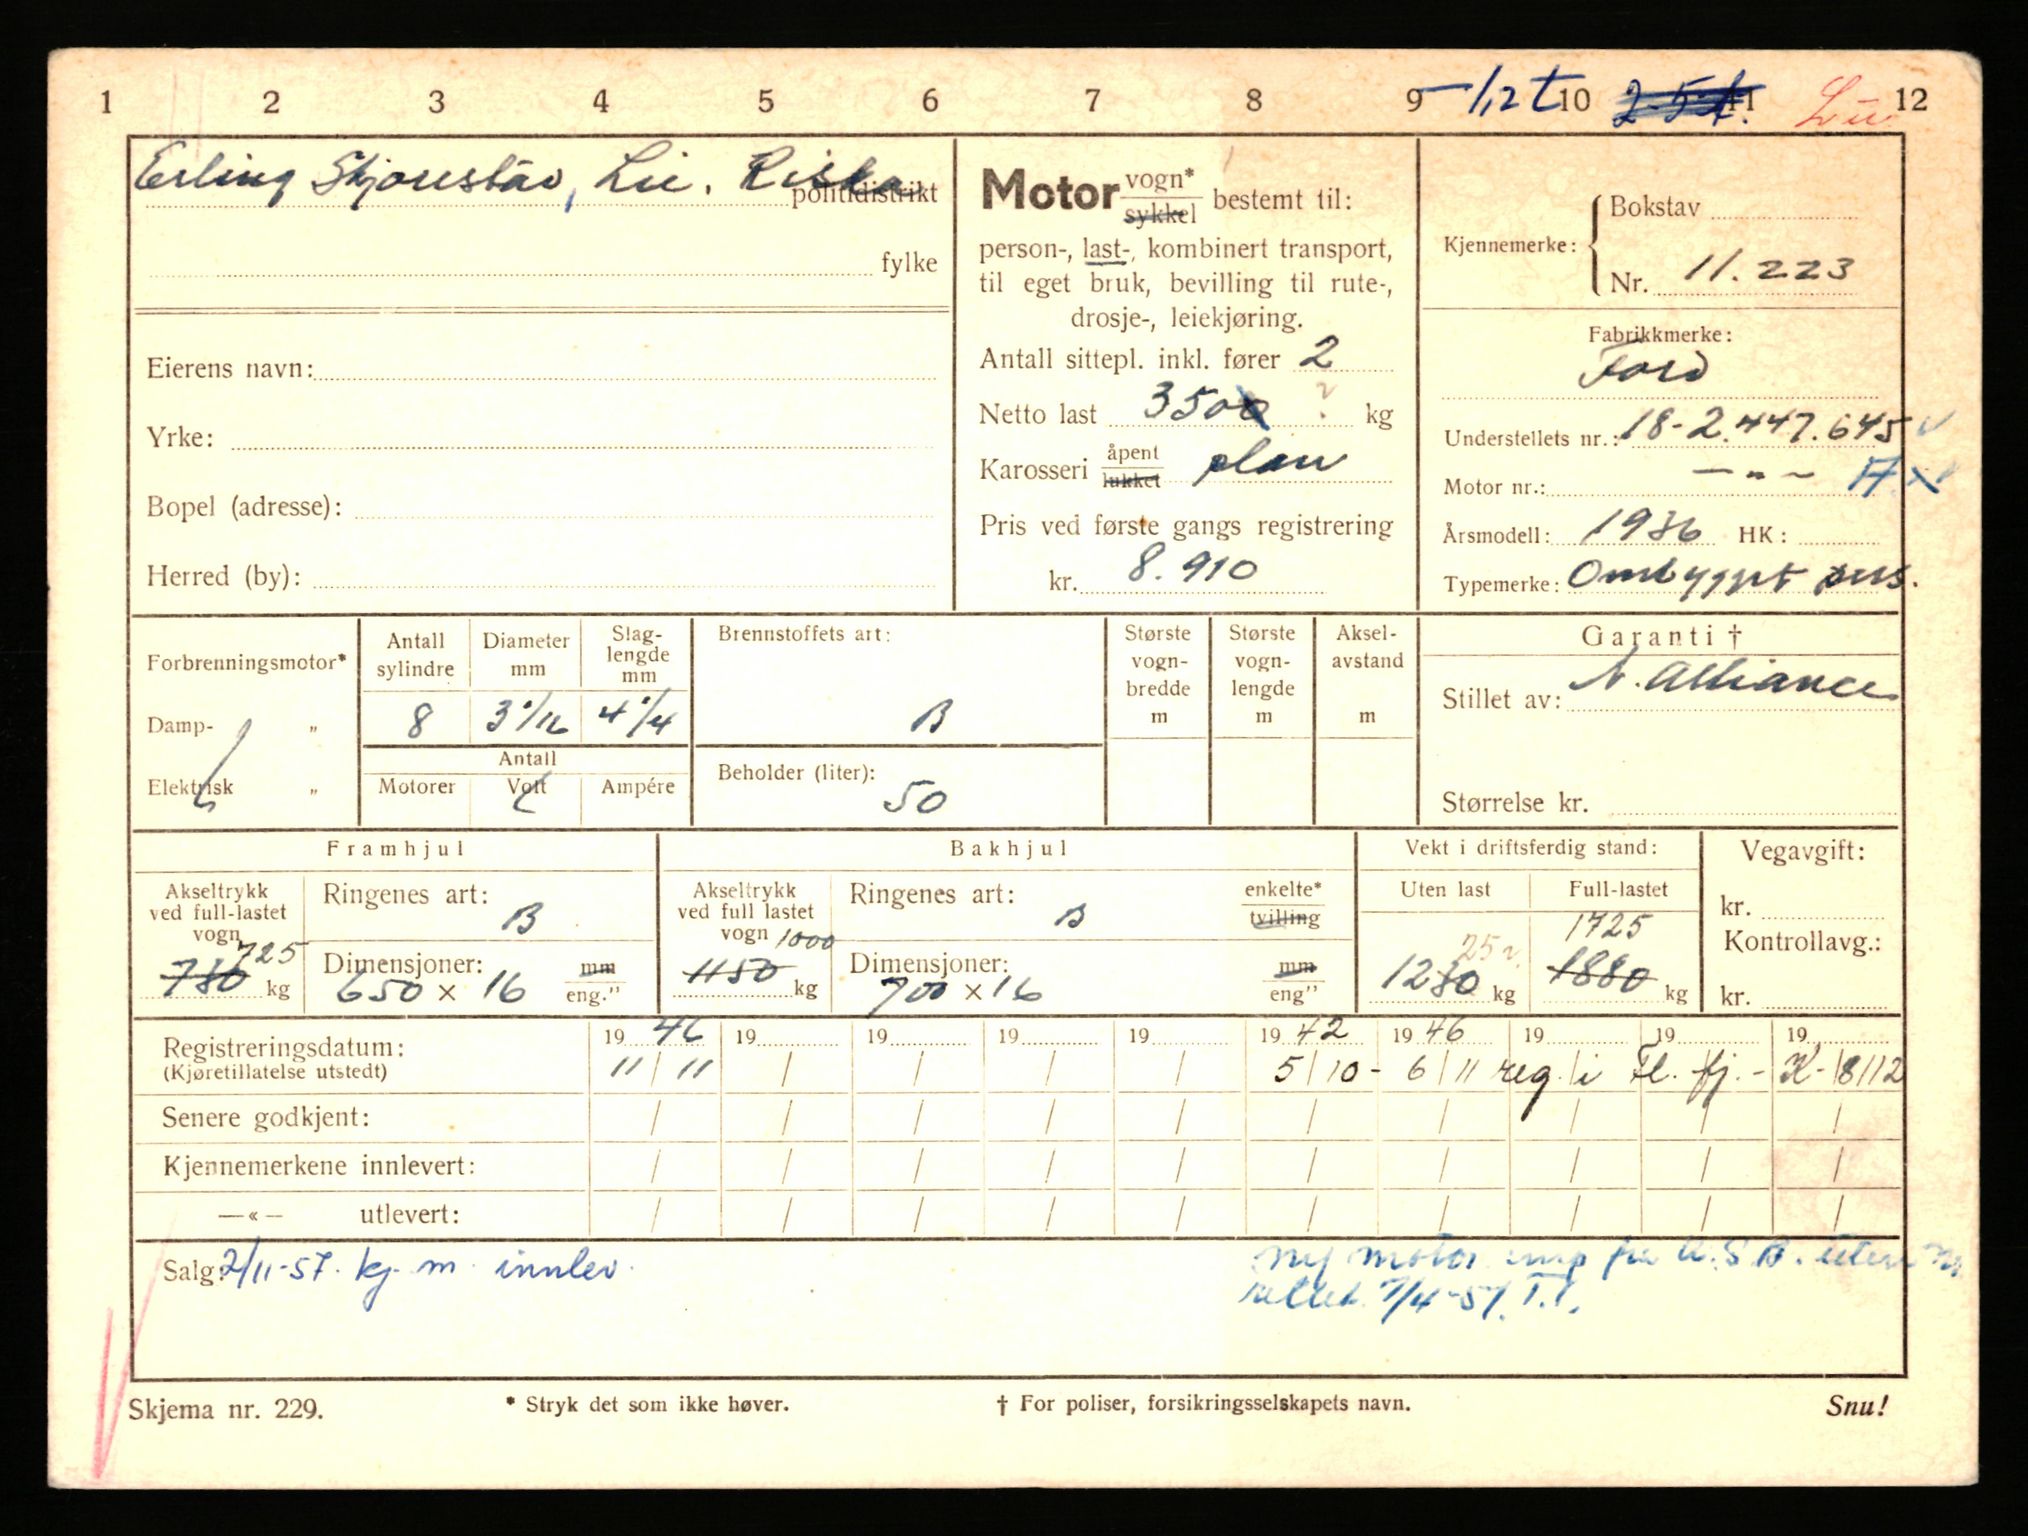 1 2 3 4 5 6 7 8 9 - 1,2 t 10 2.5 t. 11 12
Erling Skjørestad, Li. Riska politidistrikt
fylke
Eierens navn:
Yrke:
Bopel (adresse):
Herred (by):
Motor vogn* sykkel bestemt til:
person-, last-, kombinert transport,
til eget bruk, bevilling til rute-,
drosje-, leiekjøring.
Antall sittepl. inkl. fører 2
Netto last 3500 ? kg
Karosseri åpent lukket plan
Pris ved første gangs registrering
kr. 8.910
Kjennemerke: Bokstav
Nr. 11.223
Fabrikkmerke:
Ford
Understellets nr.: 18-2.447.645
Motor nr.: - " -
Årsmodell: 1936 HK:
Typemerke: Ombygget pers.
Forbrenningsmotor*
Damp- „
Elektrisk „
Antall sylindre Diameter mm Slag-lengde mm
8 3 1/16 4 1/4
Antall
Motorer Volt Ampére
Brennstoffets art:
B
Beholder (liter):
50
Største vogn-bredde m
Største vogn-lengde m
Aksel-avstand m
Garanti †
Stillet av: N. Alliance
Størrelse kr.
Framhjul
Akseltrykk ved full-lastet vogn
725
780 kg
Ringenes art:
B
Dimensjoner: mm
650 x 16 eng."
Bakhjul
Akseltrykk ved full lastet vogn 1000
1150 kg
Ringenes art: enkelte*
B tvilling
Dimensjoner: mm
700 x 16 eng"
Vekt i driftsferdig stand:
Uten last Full-lastet
25 1725
1230 kg 1880 kg
Vegavgift:
kr.
Kontrollavg.:
kr.
Registreringsdatum: 19 46 19 19 19 19 19 42 19 46 19 19 19
(Kjøretillatelse utstedt) 11/11 5/10 - 6/11 reg. i Fl. fj. - K- 8/12
Senere godkjent:
Kjennemerkene innlevert:
—«— utlevert:
Salg: 2/11-57. kj. m. innlev.
ny motor imp fra U.S.A. uten nr
rettet 7/4-51. T.T.
Skjema nr. 229.
* Stryk det som ikke høver.
† For poliser, forsikringsselskapets navn.
Snu!